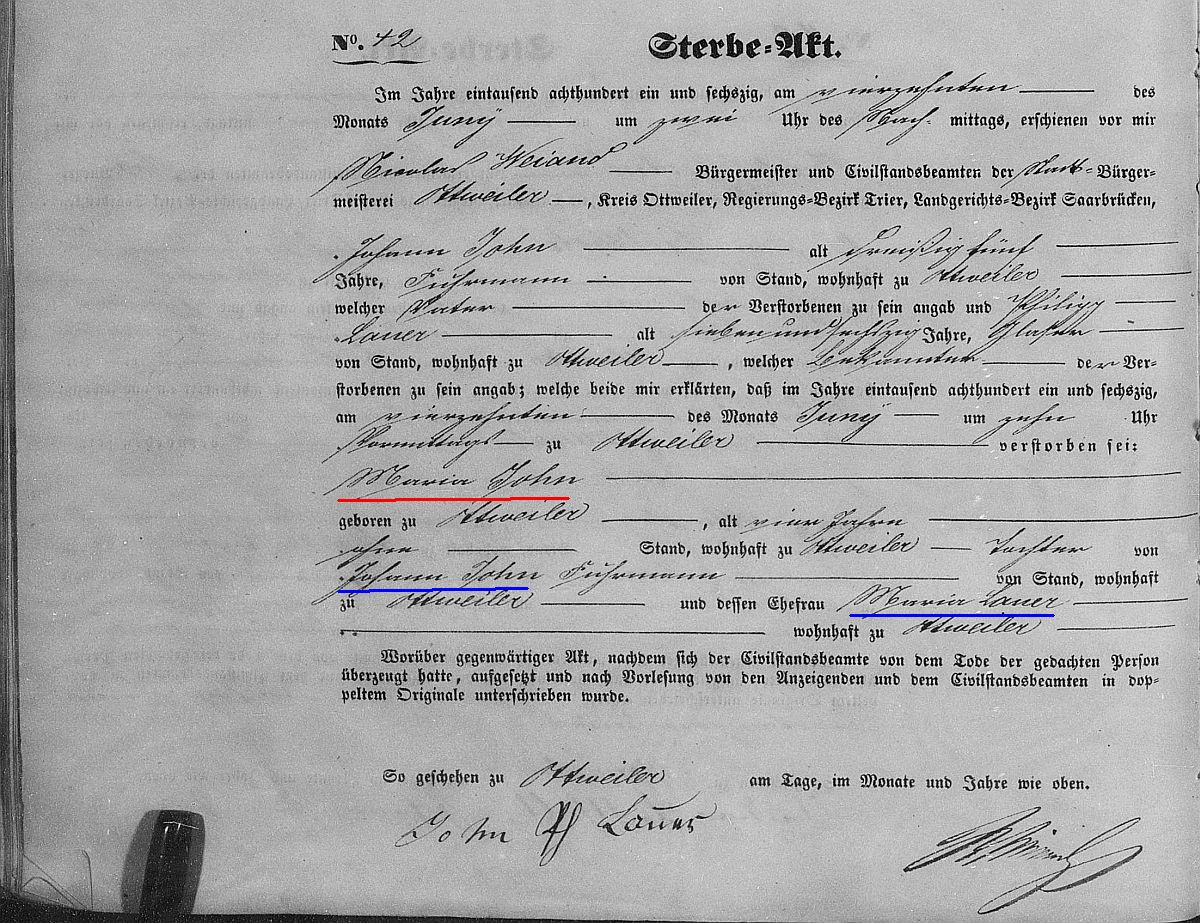 No. 42 Sterbe-Akt.
Im Jahre eintausend achthundert ein und sechszig, am vierzehnten des
Monats Juny um zwei Uhr des Nach- mittags, erschienen vor mir
Nicolas Weiand Bürgermeister und Civilstandsbeamten der Stadt-Bürger-
meisterei Ottweiler, Kreis Ottweiler, Regierungs-Bezirk Trier, Landgerichts-Bezirk Saarbrücken,
Johann John alt dreißig fünf
Jahre, Fuhrmann von Stand, wohnhaft zu Ottweiler
welcher Vater der Verstorbenen zu sein angab und Philipp
Lauer alt sieben und sechszig Jahre, Glaser
von Stand, wohnhaft zu Ottweiler, welcher Bekannter der Ver-
storbenen zu sein angab; welche beide mir erklärten, daß im Jahre eintausend achthundert ein und sechszig,
am vierzehnten des Monats Juny um zehn Uhr
Vormittags zu Ottweiler verstorben sei:
Maria John
geboren zu Ottweiler, alt vier Jahre
ohne Stand, wohnhaft zu Ottweiler Tochter von
Johann John Fuhrmann von Stand, wohnhaft
zu Ottweiler und dessen Ehefrau Maria Lauer
wohnhaft zu Ottweiler
Worüber gegenwärtiger Akt, nachdem sich der Civilstandsbeamte von dem Tode der gedachten Person
überzeugt hatte, aufgesetzt und nach Vorlesung von den Anzeigenden und dem Civilstandsbeamten in dop-
peltem Originale unterschrieben wurde.
So geschehen zu Ottweiler am Tage, im Monate und Jahre wie oben.
John Ph Lauer